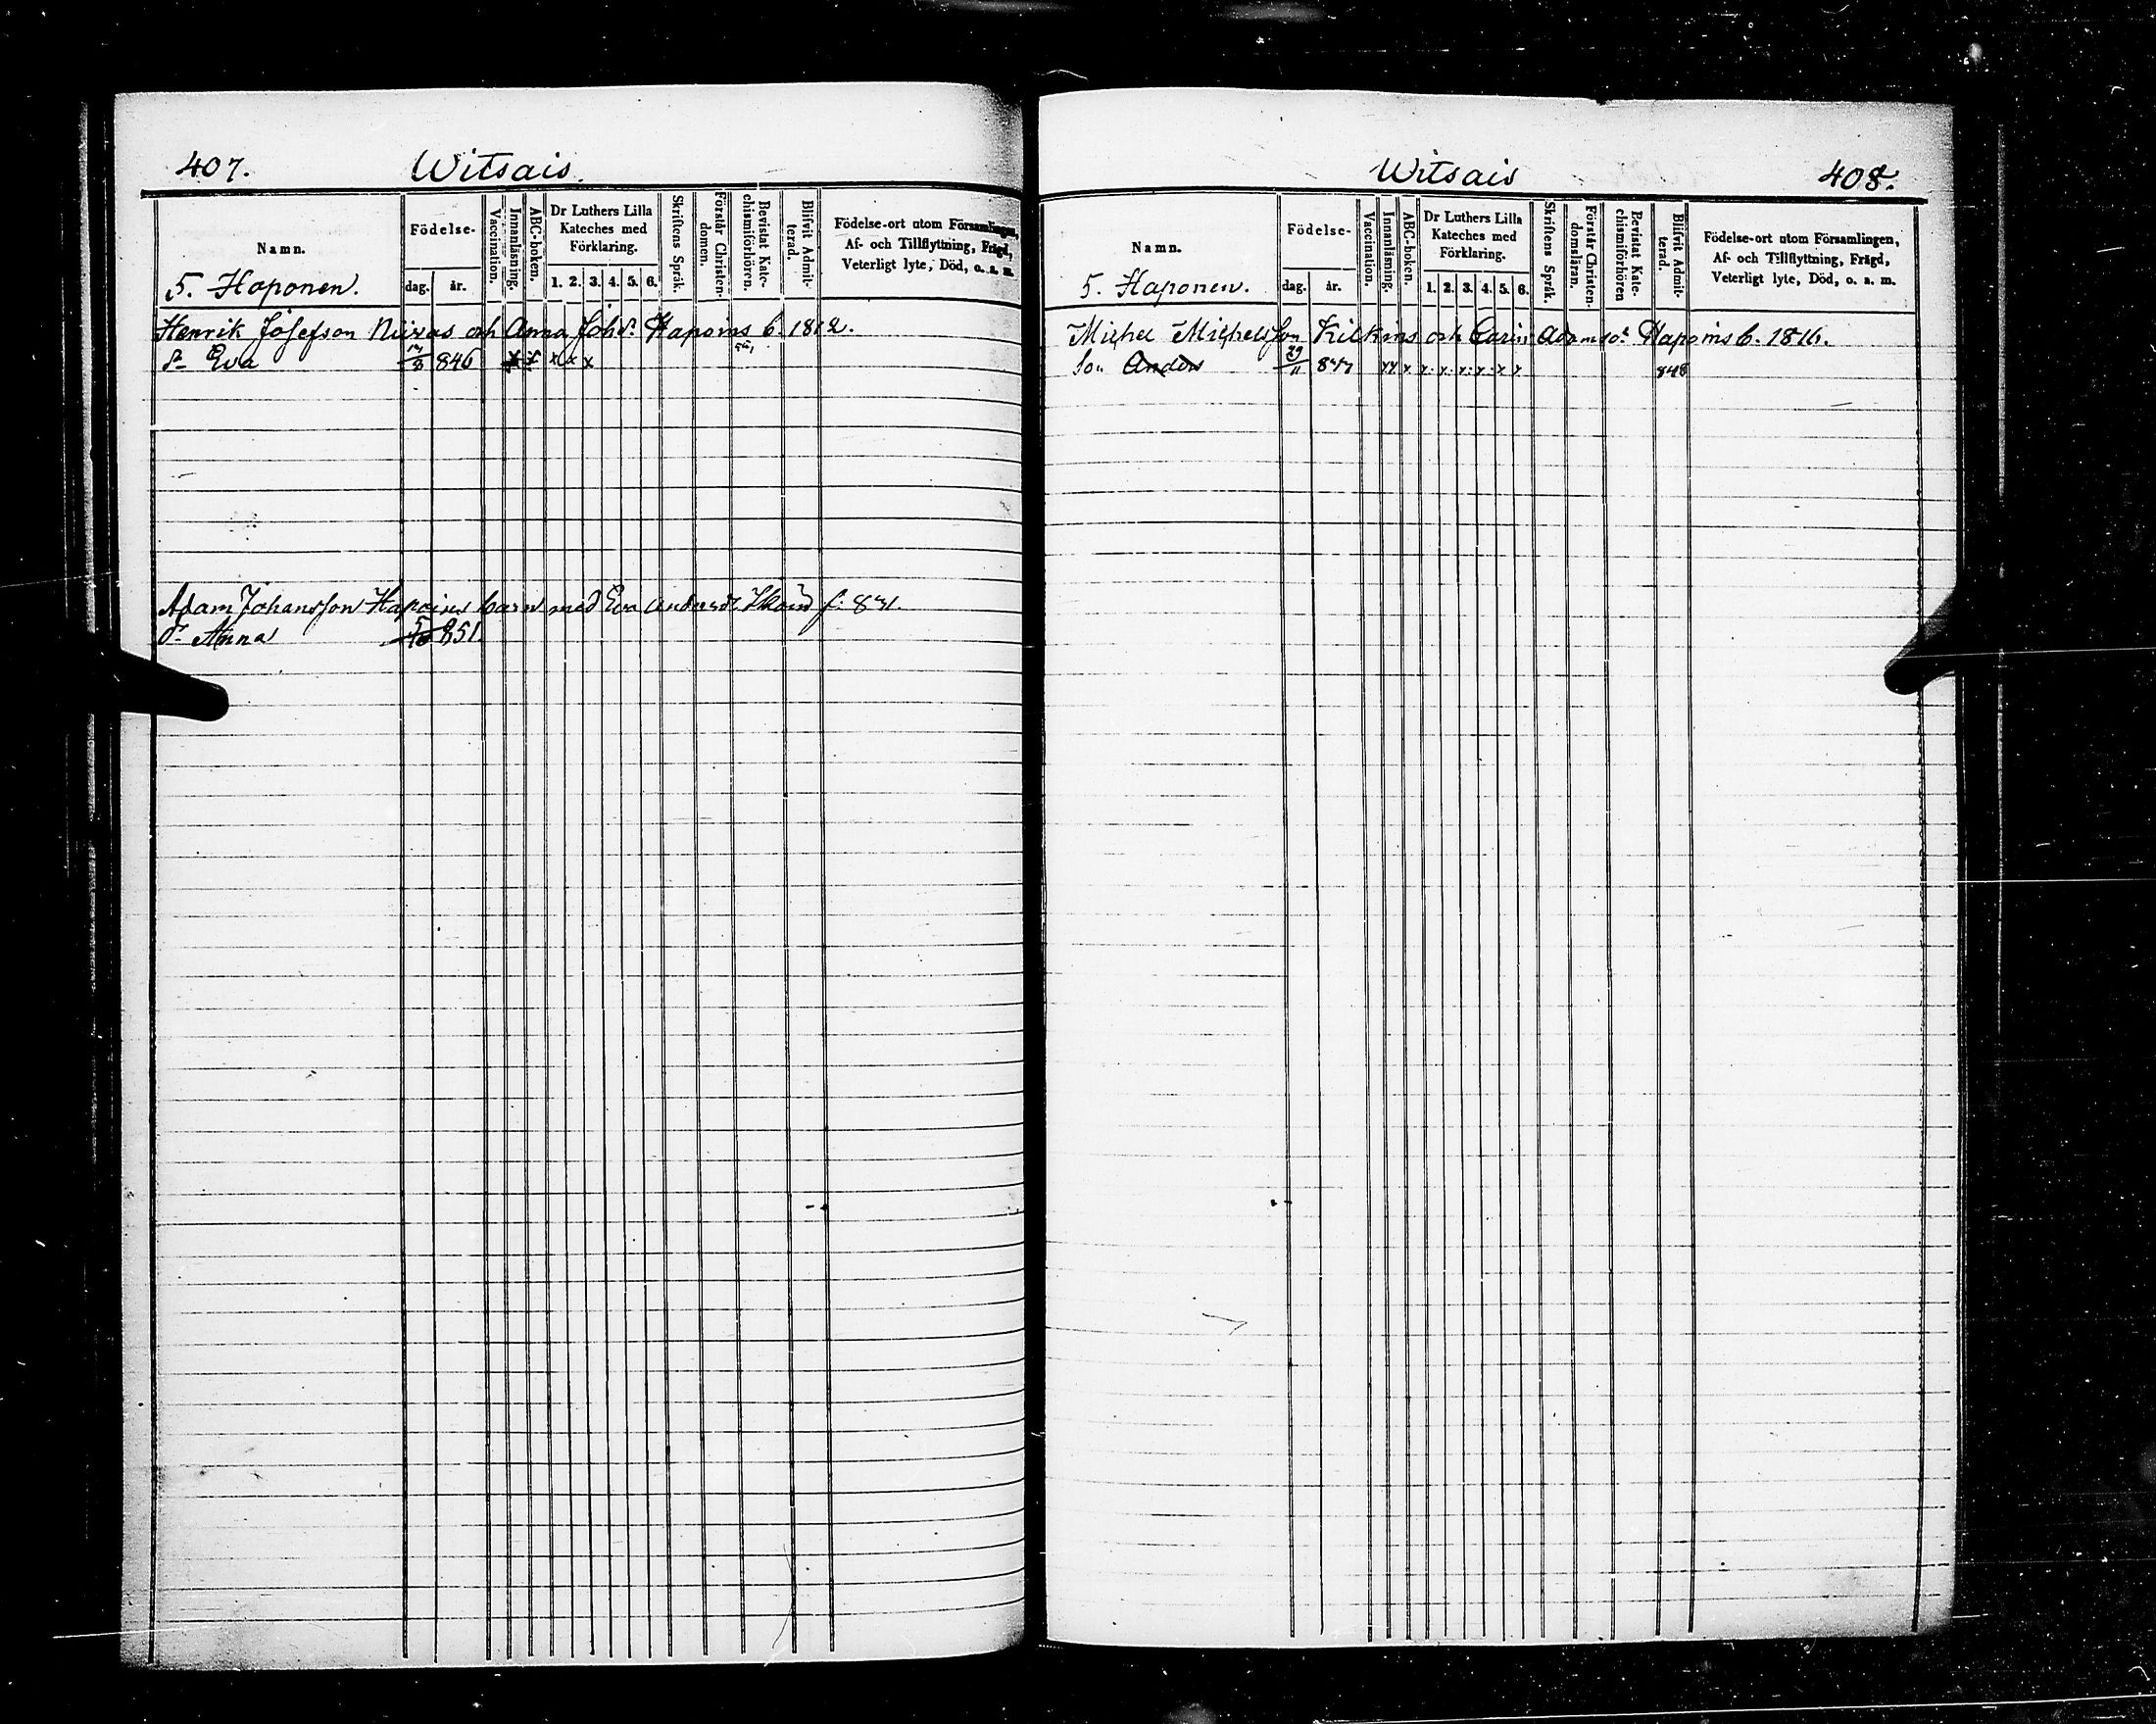 407. Witsais.
Namn. Födelse- dag. år. Vaccination. Innanläsning. ABC-boken. Dr Luthers Lilla Kateches med Förklaring. 1. 2. 3. 4. 5. 6. Skriftens Språk. Förstår Christendomen. Bevistat Katechismiförhören. Blifvit Admitterad. Födelse-ort utom Församlingen, Af- och Tillflyttning, Frägd, Veterligt lyte, Död, o. s. m.
5. Haponen.
Henrik Josefson och Anna Johdr. Hapoins b. 1812.
Dr Eva 846 x x x x x
Adam Johansson Hapoins barn med Eva f. 831.
Dr Anna 5/10 851.
Witsais 408.
Namn. Födelse- dag. år. Vaccination. Innanläsning. ABC-boken. Dr Luthers Lilla Kateches med Förklaring. 1. 2. 3. 4. 5. 6. Skriftens Språk. Förstår Christendomsläran. Bevistat Katechismiförhören Blifvit Admitterad. Födelse-ort utom Församlingen, Af- och Tillflyttning, Frägd, Veterligt lyte, Död, o. s. m.
5. Haponen.
Michel Michelsson och Carin Adamsdr Hapoins b. 1816.
Son Anders 29/11 xx x x x x x x x 848